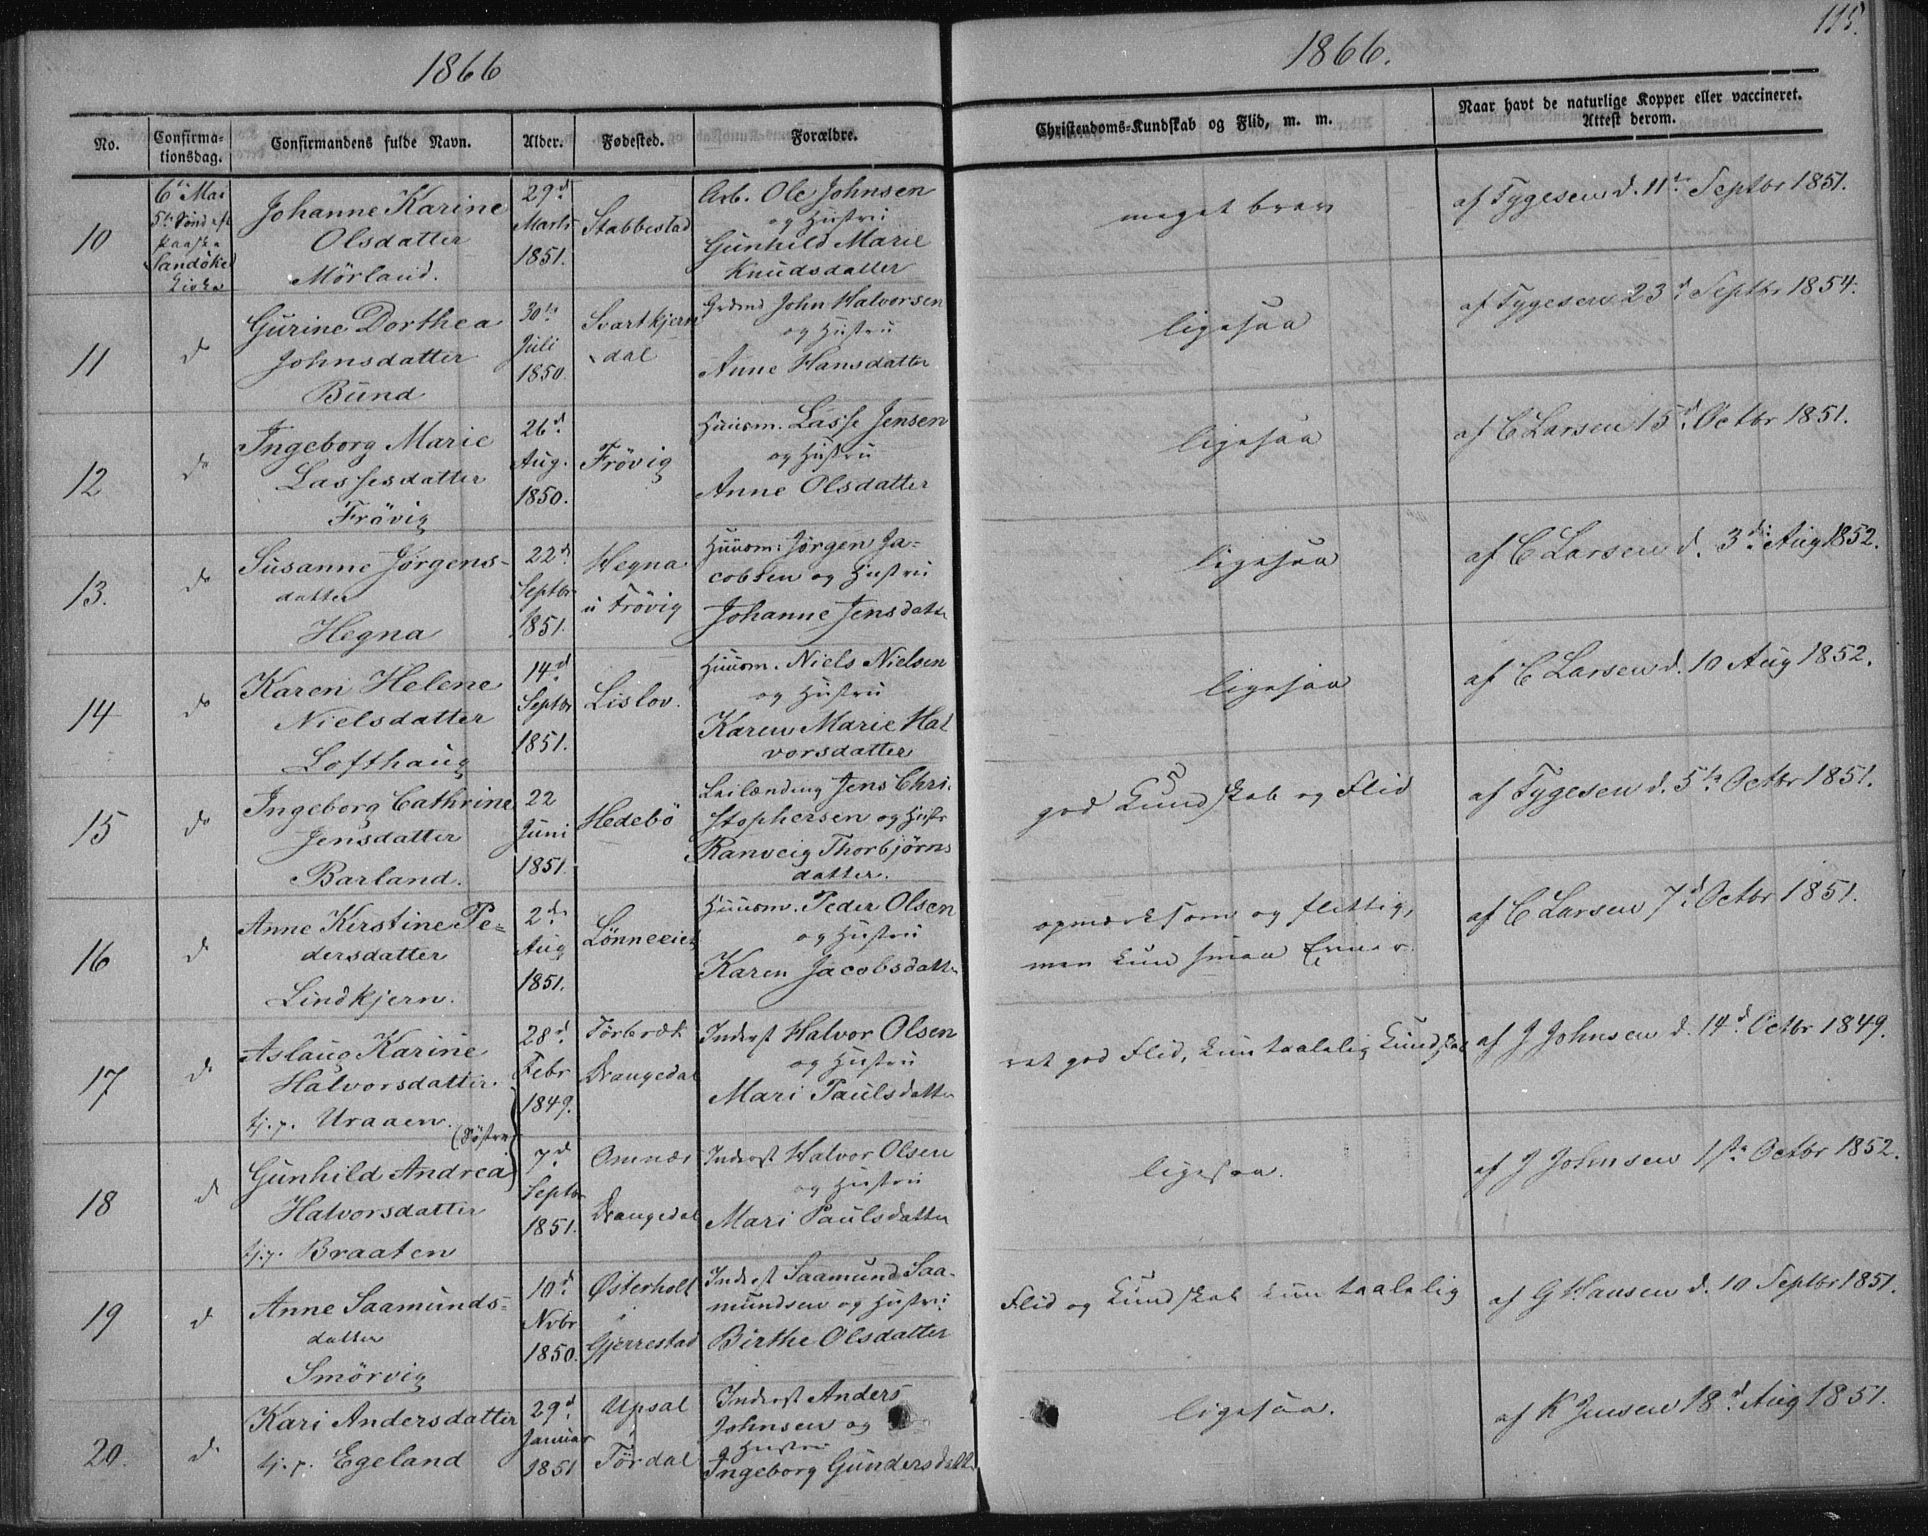 1866
1866.
115.
No.
Confirma-
tionsdag.
Confirmandens fulde Navn.
Alder.
Fødested.
Forældre.
Christendoms-Kundskab og Flid, m. m.
Naar havt de naturlige Kopper eller vaccineret.
Attest derom.
10
6te Mai
5te Sönd. eft
Paaske
Sandökel
Kirke
Johanne Karine
Olsdatter
Mörland.
29d
Marts
1851.
Stabbestad
Arb. Ole Johnsen
og Hustru
Gunhild Marie
Knudsdatter
meget brav
af Tygesen d. 11te Septbr 1851.
11
do
Gurine Dorthea
Johnsdatter
Bund
30te
Juli
1850.
Svartkjern
dal
Grdmd John Halvorsen
og Hustru
Anne Hansdatter
ligesaa
af Tygesen 23d Septbr 1854.
12
do
Ingeborg Marie
Lassesdatter
Frövig
26d
Aug.
1850.
Frövig
Huusm. Lasse Jensen
og Hustru
Anne Olsdatter
ligesaa
af C Larsen 15d Octbr 1851.
13.
do
Susanne Jörgens-
datter
Hegna
22d
Septbr
1851.
Hegna
u Frövig
Huusm: Jörgen Ja-
cobsen og Hustru
Johanne Jensdatter
ligesaa
af C Larsen d. 3die Aug 1852.
14
do
Karen Helene
Nielsdatter
Lofthaug
14d
Septbr
1851.
Lislov.
Huusm. Niels Nielsen
og Hustru
Karen Marie Hal
vorsdatter
ligesaa
af C Larsen d. 10 Aug 1852.
15
do
Ingeborg Cathrine
Jensdatter
Barland.
22
Juni
1851.
Hedebö
Leilænding Jens Chri-
stophersen og Hustr
Ranveig Thorbjörns
datter.
god Kundskab og Flid
af Tygesen d. 5te Octbr 1851.
16
do
Anne Kirstine Pe-
dersdatter
Lindkjern.
2de
Aug
1851.
Lönneeiet
Huusm. Peder Olsen
og Hustru
Karen Jacobsdatter
opmærksom og flittig,
men kun smaa Evner.
af C Larsen 7d Octbr 1851.
17
do
Aslaug Karine
Halvorsdatter.
tj. p. Uraaen.
(Söstre)
28d
Febr
1849.
Törbræk
Drangedal
Inderst Halvor Olsen
og Hustru
Mari Paulsdatter
ret god Flid, kun taalelig Kundskab
af J Johnsen d. 14d Octbr 1849.
18
do
Gunhild Andrea
Halvorsdatter
tj. p. Braaten
7d
Septbr
1851.
Omnæs
Drangedal
Inderst Halvor Olsen
og Hustru
Mari Paulsdatter
ligesaa.
af J Johnsen 1ste Octbr 1852.
19
do
Anne Saamunds-
datter
Smörvig
10d
Nvbr
1850.
Østerholt
i
Gjerrestad
Inderst Saamund Saa-
mundsen og Hustru
Birthe Olsdatter
Flid og Kundskab kun taalelig
af G Hansen d. 10 Septbr 1851.
20.
do
Kari Andersdatter
tj. p. Egeland
29d
Januar
1851
Upsal
i
Tördal
Inderst Anders
Johnsen og
Hustru
Ingeborg Gundersdatt
ligesaa.
af K Jensen 18d Aug 1851.